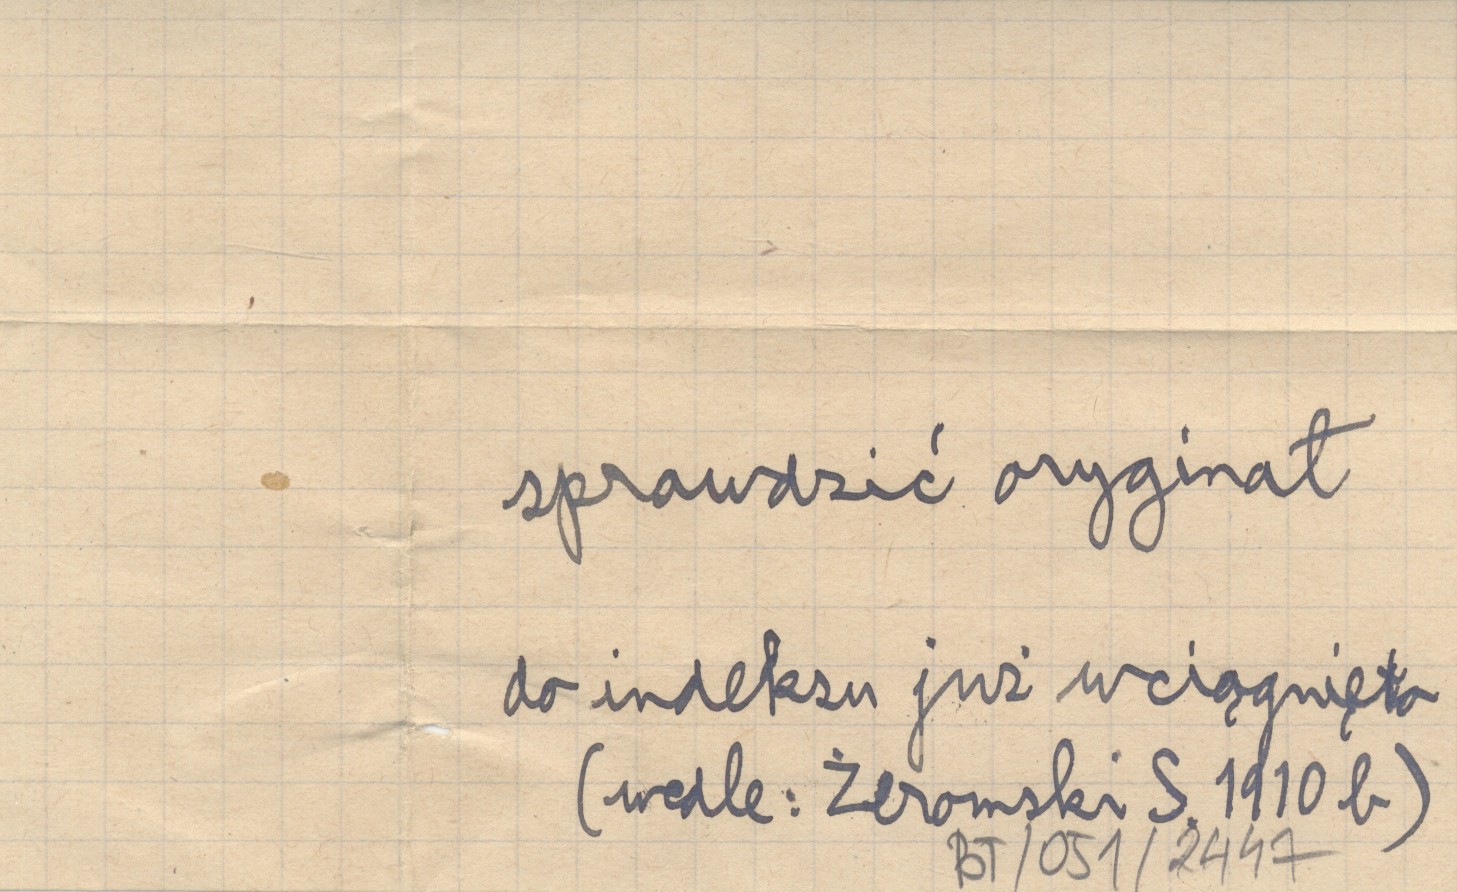 sprawdzić oryginał
do indeksu już wciągnięto
(wedle: Żeromski S. 1910 b)
BT/051/2447